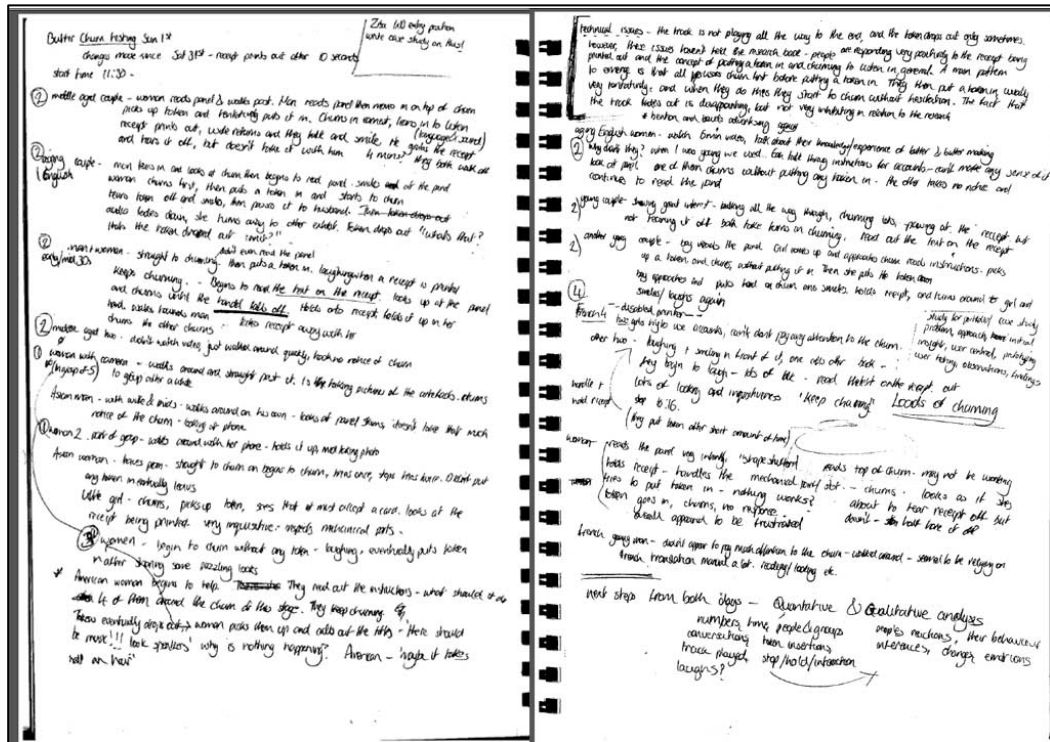 Butter Churn testing Sun 1st
changes made since Sat 31st - receipt prints out after 10 seconds
start time 11:30 -
write case study on this!
② middle aged couple - woman reads panel & walks past. Man reads panel then moves in on top of churn
picks up token and tentatively puts it in. Churns in earnest, leans in to listen
receipt prints out, wife returns and they talk and smile. He grabs the receipt
and tears it off, but doesn't take it with him 4 mins? they both walk off
(language & sound)
② couple - man leans in and looks at churn then begins to read panel - smiles at the panel
English
woman churns first, then puts a token in and starts to churn
tears token off and smiles, then passes it to husband.
audio fades down, she turns away to other exhibit. Token drops out "what's that?
the token dropped out
② man + woman - straight to churning, didn't even read the panel
early/mid 30s
then puts a token in, laughing when a receipt is printed
keeps churning - Begins to read the text on the receipt. looks up at the panel
and churns until the handle falls off. Holds onto receipt, folds it up in her
hand. walks towards man
churns the other churns takes receipt away with her
② middle aged two - didn't watch video, just walked around quietly, took no notice of churn
① woman with camera - walks around and straight past it. Is taking pictures of the artefacts. returns
(in group of 5) to group after a while
Asian man - with wife & kids - walks around on his own - looks at panel, doesn't take that much
notice of the churn - looking at phone
① woman 2 part of group - walks around with her phone - holds it up, not taking photo
Asian woman - straight to churn and began to churn, turns once, stops
any token in eventually leaves
Little girl - churns, picks up token, sees that it must accept a card. looks at the
receipt being printed very inquisitive - inspects mechanical parts.
women - begin to churn without any token - laughing, eventually puts token
in after sharing some puzzling looks
* American woman begins to help. They read out the instructions - what should it do
4 of them around the churn at this stage. They keep churning
eventually drops out, woman picks them up and calls out the titles - 'there should
be music!!! look speakers' why is nothing happening? American - 'maybe it takes
half an hour'
technical issues - the track is not playing all the way to the end, and the token drops out only sometimes.
however, these issues haven't held the research back - people are responding very positively to the receipt being
printed out and the concept of putting a token in and churning to listen in general. A main pattern
to emerge is that all persons churn first before putting a token in. They then put a token in, usually
very tentatively - and when they do this they start to churn without hesitation. The fact that
the track fades out is disappointing, but not very inhibiting in relation to the research
ageing English women - watch video, talk about their knowledge/experience of butter & butter making
② why don't they? when I was young we used.
look at panel one of them churns without putting any token in - the other takes no notice and
continues to read the panel
2) young couple - showing great interest - looking all the way through, churning lots, at the receipt, but
not tearing it off both take turns in churning. read out the text on the receipt
2) another young couple - boy reads the panel. Girl comes up and approaches churn reads instructions. picks
up a token and churns, without putting it in. Then she puts the token down
boy approaches and puts hand on churn and smiles. holds receipt, and turns around to girl and
smiles/laughs again
④
French 4 - disabled
two girls don't pay any attention to the churn.
other two - laughing + smiling in front of it, one calls other back -
they begin to laugh - lots of talk - read the text on the receipt out
Lots of looking and inquisitiveness "keep churning" Loads of churning
handle +
hold receipt
stop 10:16.
(they put token after short amount of time)
study for portfolio/case study
problem, approach, initial
insight, user centred, prototyping
user testing, observations, findings
woman reads the panel very intently, reads top of churn - may not be working
holds receipt - handles the mechanical part/slot - churns. looks as if she's
tries to put token in - nothing works? about to tear receipt off but
token goes in, churns, no response
overall appeared to be frustrated
french young man - didn't appear to pay much attention to the churn - walked around - seemed to be relying on
french translation manual a lot. reading/looking etc.
next steps from both days - Quantative & Qualitative analysis
numbers, time, people & groups
conversations, token insertions
track played, stop/hold/interaction
laughs?
peoples reactions, their behaviour
inferences, changes, emotions